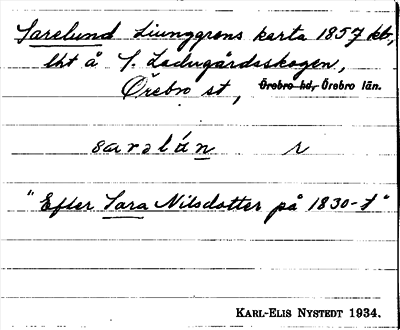 Sarelund Ljunggrens karta 1857 kbr,
lht å S. Ladugårdsskogen,
Örebro st, Örebro hd, Örebro län.
sarəlún r
"Efter Sara Nilsdotter på 1830-t"
KARL-ELIS NYSTEDT 1934.